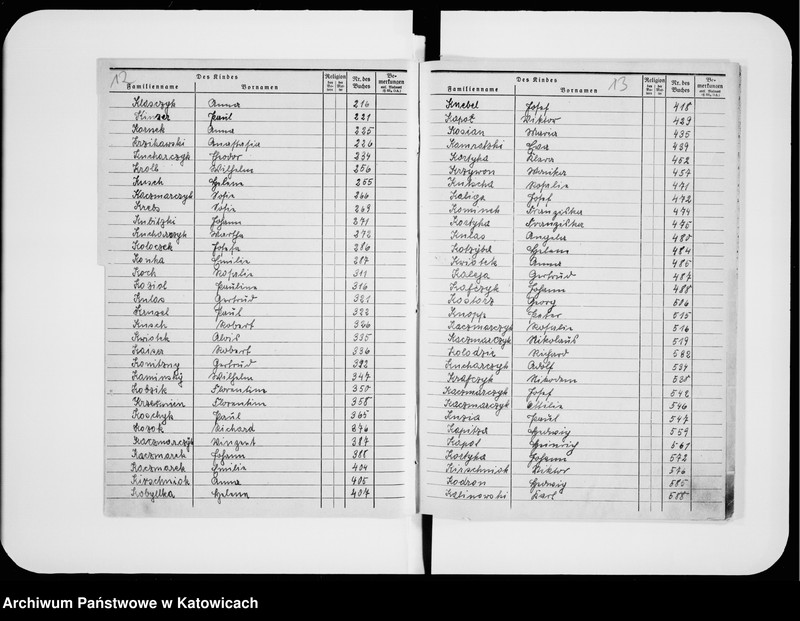 12
Des Kindes Religion Nr. des Buches Bemerkungen
Familienname Vornamen
Klasczyk Anna 216
Kinzer Paul 221
Kornek Anna 225
Krzikawski Anastasia 226
Kucharczyk Theodor 234
Kroll Wilhelm 256
Kusch Helene 255
Kaczmarczyk Sofie 266
Krebs Sofie 269
Kubitzki Johann 271
Kucharczyk Martha 272
Koloczek Josefa 286
Konka Emilie 287
Koch Rosalie 311
Koziol Pauline 316
Kulas Gertrud 321
Kensel Paul 322
Kusch Robert 326
Kwiotek Alois 335
Kaiser Robert 336
Konitzny Gertrud 392
Kaminsky Wilhelm 347
Kobzik Florentine 350
Florentine 358
Koschyk Paul 365
Kozok Richard 376
Kaczmarczyk Vinzent 387
Kaczmarek Johann 388
Kaczmarek Emilie 404
Kirschniok Anna 405
Kobyllka Helene 407
13
Des Kindes Religion Nr. des Buches Bemerkungen
Familienname Vornamen
Knebel Josef 418
Kapot Viktor 429
Kosian Maria 435
Kampalski Eva 439
Kostyka Klara 452
Krzywon Monika 457
Kutscha Rosalie 471
Kaliga Josef 472
Kominek Franziska 474
Kostyka Franziska 475
Kulas Angela 480
Kotzyba Helene 484
Kwiotek Anna 485
Kaleja Gertrud 487
Kafczyk Johann 488
Kostorz Georg 506
Knopp Peter 515
Kaczmarczyk Rosalie 516
Kaczmarczyk Nikolaus 519
Kolodzie Richard 532
Kucharczyk Adolf 534
Krafczyk Nikodem 538
Kaczmarczyk Josef 542
Kaczmarczyk Ottilie 546
Kuzia Paul 547
Kapitza Hedwig 559
Kapol Heinrich 561
Kostyka Johann 572
Kirschniok Viktor 576
Kodron Hedwig 585
Kalinowski Karl 588
Archiwum Państwowe w Katowicach